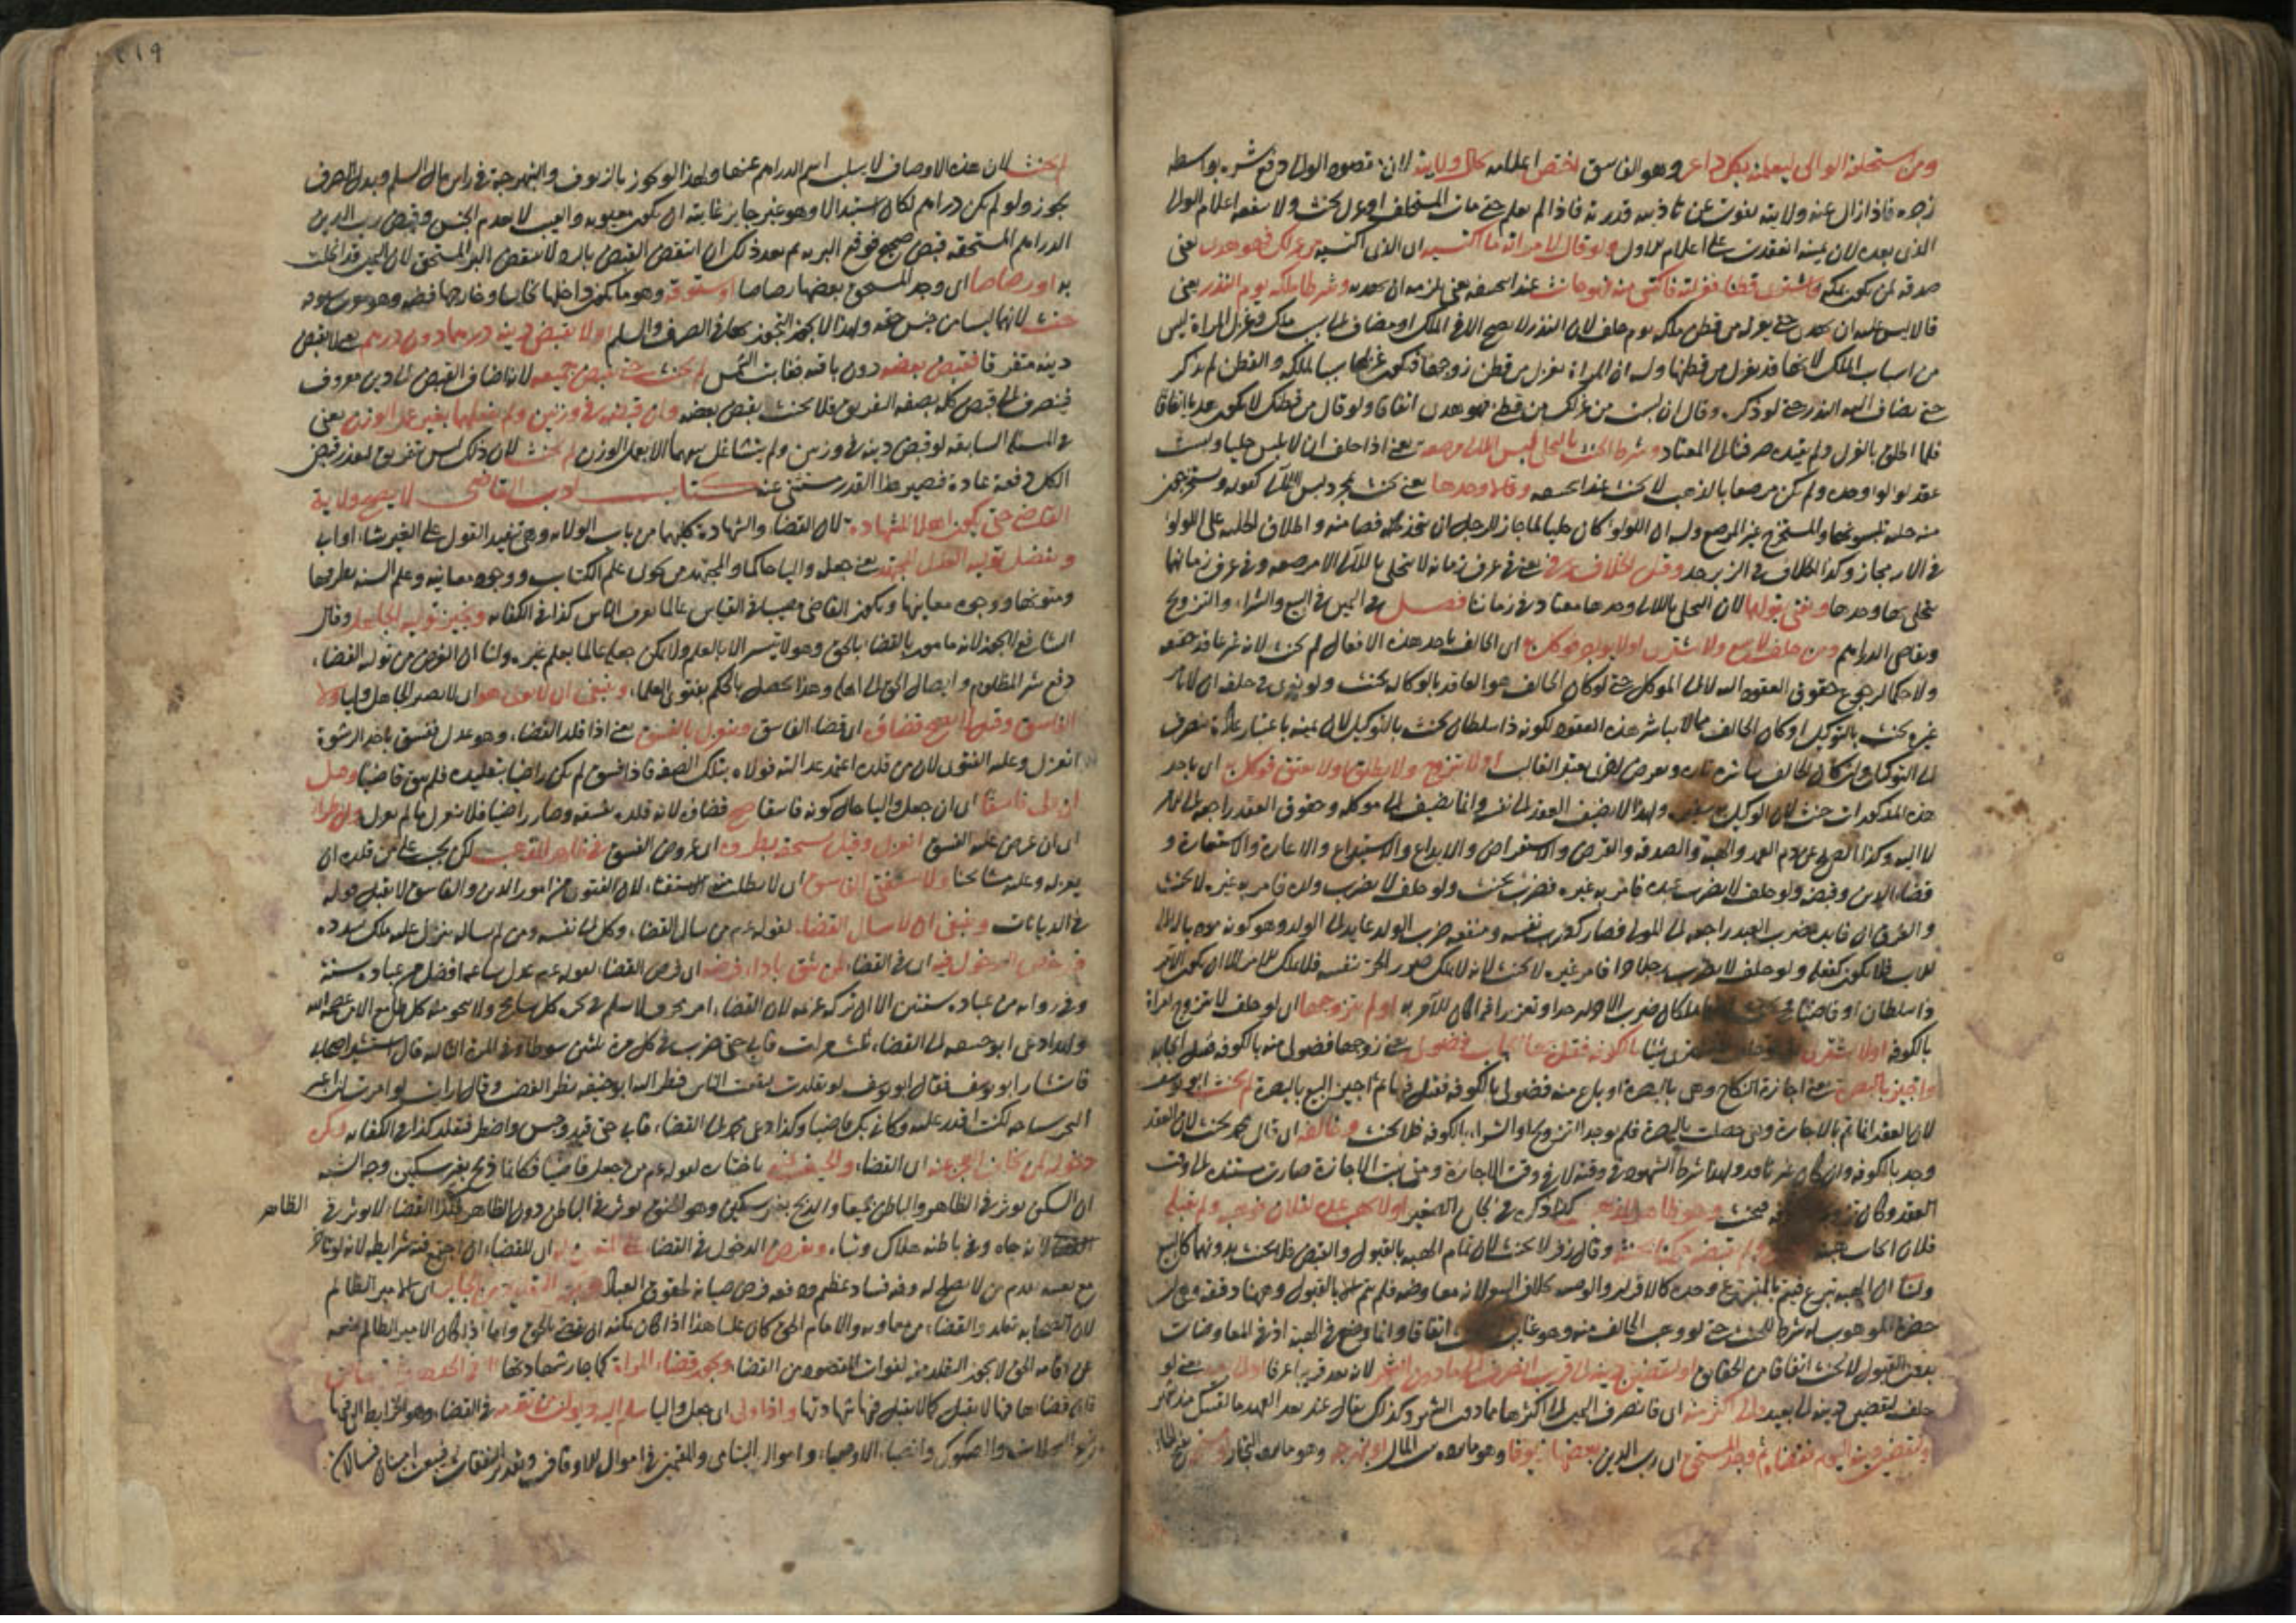 ومن استحلفه الوالي ليعلمنه بكل داعر وهو الفاسق اختص اعلامه بحال ولايته لان مقصود الوالي دفع شره بواسطة
زجره فاذا زال عنه ولايته يفوت عن تأديبه قدرته فاذا لم يعلم حتى مات المستحلف او عزل يحنث ولا ينفعه اعلام الوالي
الذي بعده لان يمينه انعقدت على اعلام الاول ولو قال لامراته ما اكتسيه اي الذي اكتسيه من غزلك فهو هدي يعني
صدقة فاشترى قطنا فغزلته فاكتسى منه فهو حانث عند ابي حنيفة يعني يلزمه ان يهديه وشرطا ملكه يوم النذر يعني
قالا ليس عليه ان يهدي حتى يغزله من قطن ملكه يوم حلف لان النذر لا يصح الا في الملك او مضافا الى سبب ملك وغزل المراة ليس
من اسباب الملك لانها قد تغزل من قطنها وله ان المراة تغزل من قطن زوجها فيكون غزلها سببا لملكه والقطن لم يذكر
حتى يضاف اليه النذر حتى لو ذكره وقال ان لبست من غزلك من قطني فهو هدي اتفاقا ولو قال من قطنك لا يكون هديا اتفاقا
فلما اطلق الغزل ولم يقيده صرفناه الى المعتاد وشرط الحنث بالتحلي لبس اللآلي مرصعة يعني اذا حلف ان لا يلبس حليا ولبست
عقد لؤلؤ وحده ولم يكن مرصعا بالذهب لا يحنث عند ابي حنيفة وقالا وحدها يعني يحنث بمجرد لبس اللآلي لقوله وتستخرجون
منه حلية تلبسونها والمستخرج غير المرصع وله ان اللؤلؤ لو كان حليا لما جاز للرجل ان يتخذ فصا منه واطلاق الحلية على اللؤلؤ
في الآية مجاز وكذا الخلاف في الزبرجد وقيل الخلاف عرفي يعني في عرف زمانه لا يتحلى باللآلي الا مرصعة وفي عرف زمانهما
يتحلى بها وحدها ويفتى بقولهما لان التحلي باللآلي وحدها معتاد في زماننا فصل في اليمين في البيع والشراء والتزويج
وتقاضي الدراهم ومن حلف لا يبيع ولا يشتري او لا يؤجر فوكل به اي الحالف باحد هذه الافعال لم يحنث لانه غير عاقد حقيقة
ولا حكما لرجوع حقوق العقود اليه لا الى الموكل حتى لو كان الحالف هو العاقد بالوكالة يحنث ولو نوى في حلفه ان لا يامر
غيره يحنث بالتوكيل او كان الحالف ممن لا يباشر هذه العقود لكونه ذا سلطان يحنث بالتوكيل لان يمينه باعتبار عادته تنصرف
الى التوكيل وان كان الحالف يباشر تارة ويفوض اخرى يعتبر الغالب او لا يتزوج ولا يطلق ولا يعتق فوكل به اي باحد
هذه المذكورات حنث لان الوكيل سفير ولهذا لا يضيف العقد الى نفسه وانما يضيف الى موكله وحقوق العقد راجعة الى الآمر
لا اليه وكذا الصلح عن دم العمد والهبة والصدقة والقرض والاستقراض والايداع والاستيداع والاعارة والاستعارة و
قضاء الدين وقبضه ولو حلف لا يضرب عبده فامر به غيره فضرب يحنث ولو حلف لا يضرب ولده فامر به غيره لا يحنث
والفرق ان فايدة ضرب العبد راجعة الى المولى فصار كضربه بنفسه ومنفعة ضرب الولد عايدة الى الولد وهو كونه
للاب فلا يكون كفعله ولو حلف لا يضرب رجلا حرا فامر غيره لا يحنث لانه لا يملك ضرب الحر بنفسه فلا يملك الامر الا ان يكون الآمر
ذا سلطان او قاضيا لما كان ضرب الاول حدا وتعزيرا فكان للآمر به او لم يتزوجها اي لو حلف لا يتزوج امراة
بالكوفة او لا يشتري شيئا بالكوفة فقيل هناك ايجاب فضولي يعني زوجها فضولي منه بالكوفة قبل ايجابه
واجيز بالبصرة يعني اجازة النكاح وهي بالبصرة او باع منه فضولي بالكوفة فقبل فيها ثم اجيز البيع بالبصرة لم يحنث ابو يوسف
لان العقد انما يتم بالاجازة وهي حصلت بالبصرة فلم يوجد التزويج او الشراء بالكوفة فلا يحنث وخالفه اي قال محمد يحنث لان العقد
وجد بالكوفة وان كان غير نافذ ولهذا شرط الشهود في وقته لا في وقت الاجازة ومتى ثبت الاجازة صارت مستندة الى وقت
العقد وكان وهو ظاهر المذهب كذا ذكره في الجامع الصغير او لا يهب عبده لفلان فوهبه ولم يقبله
فلان وقال زفر لا يحنث لان تمام الهبة بالقبول والقبض فلا يحنث بدونهما كالبيع
ولنا ان الهبة تبرع فيتم بالمتبرع وحده كالاقرار والوصية بخلاف البيع لانه معاوضة فلم يتم الا بالقبول وههنا دقيقة وهي ان
حضرة الموهوب له شرط للحنث حتى لو وهب الحالف منه وهو غايب اتفاقا وانما وضع في الهبة اذ في المعاوضات
بدون القبول لا يحنث اتفاقا من الحقايق او ليقضين دينه الى قريب انصرف الى ما دون الشهر لانه يعد قريبا عرفا او الى بعيد يعني لو
حلف ليقضين دينه الى بعيد والى اكثر منه اي فانصرف اليمين الى اكثرها مما دون الشهر وكذلك يقال عند بعد العهد ما لقيتك منذ شهر
وليقضين دينه اليوم فقضاه ثم وجد المستحق اي رب الدين بعضها زيوفا وهو ما يرده بيت المال او نبهرجة وهو ما يرده التجار
٢١٩
لم يحنث لان هذه الاوصاف لا يسلب اسم الدراهم عنها ولهذا لو تجوز بالزيوف والنبهرجة في راس مال السلم وبدل الصرف
يجوز ولو لم يكن دراهم لكان استبدالا وهو غير جايز غايته ان يكون معيوبة والعيب لا يعدم الجنس وقبض رب الدين
الدراهم المستحقة قبض صحيح فوقع البر به ثم بعد ذلك ان انتقض القبض بالرد لا ينتقض البر المستحق لان اليمين قد انحلت
به او رصاصا اي وجد المستحق بعضها رصاصا او ستوقة وهو ما يكون داخلها نحاسا وخارجها فضة
حنث لانهما ليسا من جنس حقه ولهذا لا يجوز التجوز بهما في الصرف والسلم او لا يقبض دينه درهما دون درهم يعني لا يقبض
دينه متفرقا فقبض بعضه دون باقيه فغابت الشمس لم يحنث حتى يقبض جميعه لانه اضاف القبض الى دين معروف
فينصرف الى قبض كله بصفة التفريق فلا يحنث بقبض بعضه وان قبضه في وزنين ولم يتشاغل بينهما بغير عمل الوزن يعني
في المسئلة السابقة لو قبض دينه في وزنين ولم يتشاغل بينهما الا بعمل الوزن لم يحنث لان ذلك ليس بتفريق لتعذر قبض
الكل دفعة عادة فيصير هذا القدر مستثنى عنه كتاب ادب القاضي لا يصح ولاية
القاضي حتى يكون اهلا للشهادة لان القضاء والشهادة كليهما من باب الولاية وهي تنفيذ القول على الغير شاء او ابى
ويفضل تولية العدل المجتهد يعني جعله واليا حاكما والمجتهد من يحوي علم الكتاب ووجوه معانيه وعلم السنة بطرقها
ومتونها ووجوه معانيها ويكون القاضي مصيبا في القياس عالما بعرف الناس كذا في الكفاية ونجيز تولية الجاهل وقال
الشافعي لا يجوز لانه مامور بالقضاء بالحق وهو لا يتيسر الا بالعلم ولا يمكن جعله عالما بعلم غيره ولنا ان الغرض من تولية القضاء
دفع شر المظلوم وايصال الحق الى اهله وهذا يحصل بالحكم بفتوى العلماء وينبغي ان لا يولى هو اي لا يصير الجاهل واليا ولا
الفاسق وقيل الاصح قضاؤه اي قضاء الفاسق وينعزل بالفسق يعني اذا قلد القضاء وهو عدل ففسق باخذ الرشوة
انعزل وعليه الفتوى لان من قلده اعتمد عدالته فولاه بتلك الصفة فاذا فسق لم يكن راضيا بتقليده فلم يبق قاضيا وقيل
ان ولي فاسقا اي ان جعل واليا حال كونه فاسقا صح قضاؤه لانه قلده بفسقه وصار راضيا فلا ينعزل ما لم يعزل وان طرأ
اي ان عرض عليه الفسق انعزل وقيل يستحقه بطروه اي عروض الفسق في ظاهر المذهب لكن يجب على من قلده ان
يعزله وعليه مشايخنا ولا يستفتى الفاسق اي لا يطلب منه الاستفتاء لان الفتوى من امور الدين والفاسق لا يقبل قوله
في الديانات وينبغي ان لا يسال القضاء لقوله عم من سال القضاء وكل الى نفسه ومن لم يساله ينزل عليه ملك يسدده
ورخص الدخول فيه اي في القضاء لمن يثق باداء فرضه اي فرض القضاء لقوله عم عدل ساعة افضل من عبادة سنة
وفي رواية من عبادة ستين الا ان تركه عزيمة لان القضاء امر مخوف لا يسلم في بحره كل سابح ولا ينجو منه كل طامع الا من عصمه الله
ولهذا دعي ابو حنيفة الى القضاء ثلث مرات فابى حتى ضرب في كل مرة ثلثين سوطا وفي المرة الثالثة قال استشير اصحابي
فاستشار ابا يوسف فقال ابو يوسف لو تقلدت لنفعت الناس فنظر اليه ابو حنيفة نظر الغضب وقال ارايت لو امرت ان اعبر
البحر سباحة لكنت اقدر عليه وكاني بك قاضيا وكذا دعي محمد الى القضاء فابى حتى قيد وحبس واضطر فتقلد كذا في الكفاية ويكره
دخوله لمن يخاف العجز عنه اي القضاء والحيف فيه باختياره لقوله عم من جعل قاضيا فكانما ذبح بغير سكين وجه الشبه
ان السكين يؤثر في الظاهر والباطن جميعا والذبح بغير سكين وهو الخنق يؤثر في الباطن دون الظاهر فكذا القضاء لا يؤثر في الظاهر
لانه جاه وفي باطنه هلاك ويفرض الدخول في القضاء على المتعين له اي للقضاء اي اجتمع فيه شرايطه لانه لو تاخر
مع تعينه تقدم من لا يصلح له وفيه فساد عظيم ودفعه فرض صيانة لحقوق العباد ويجوز التقليد من الجاير اي الامير الظالم
لان الصحابة تقلدوا القضاء من معاوية والامام الحق كان عليا هذا اذا كان يمكنه ان يقضي بالحق واما اذا كان الامير الظالم يمنعه
عن اقامة الحق لا يجوز التقليد منه لفوات المقصود من القضاء ويجوز قضاء المراة كما جاز شهادتها الا في الحدود
فان قضاءها فيها لا يقبل كما لا يقبل فيها شهادتها واذا ولي اي جعل واليا سلم اليه ديوان من تقدمه في القضاء وهو الخرايط التي فيها
نسخ السجلات والصكوك وانصباء الاوصياء واموال اليتامى والقيمين في اموال الاوقاف وتقدير النفقات